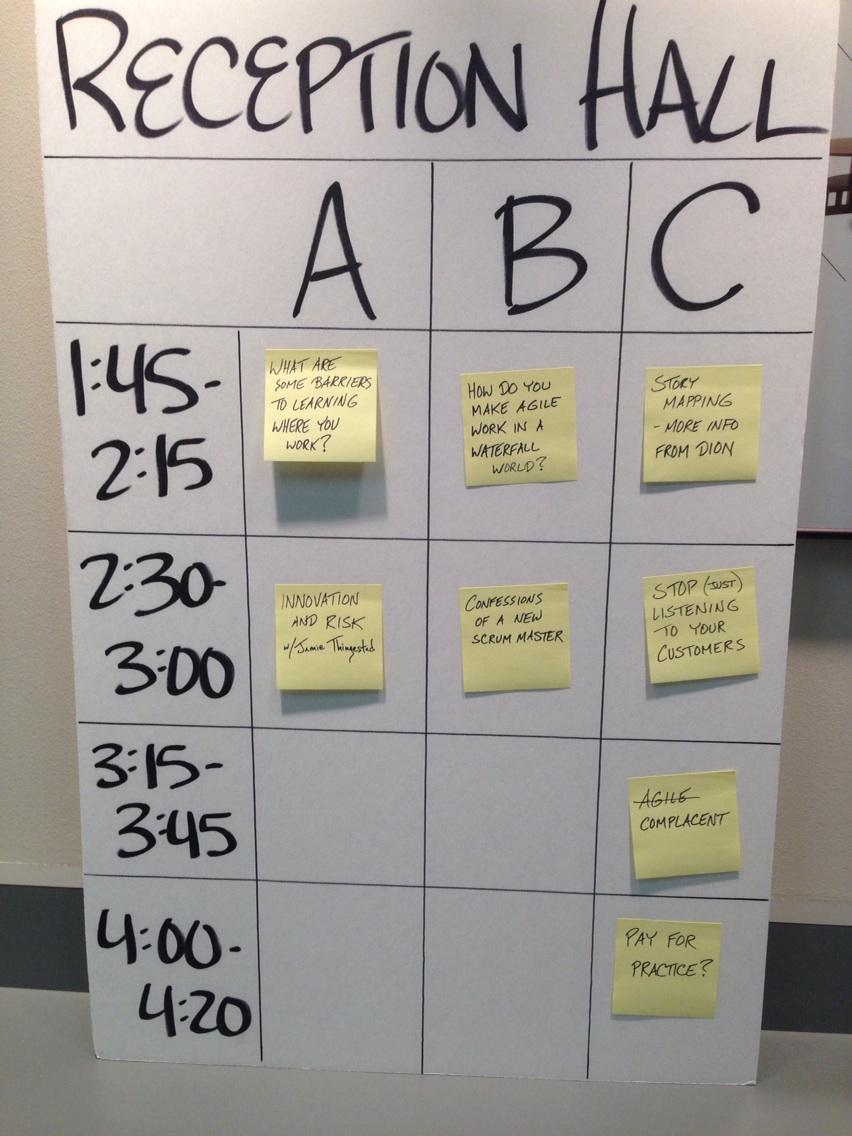 RECEPTION HALL
A B C
1:45-
2:15
WHAT ARE
SOME BARRIERS
TO LEARNING
WHERE YOU
WORK?
HOW DO YOU
MAKE AGILE
WORK IN A
WATERFALL
WORLD?
STORY
MAPPING
- MORE INFO
FROM DION
2:30-
3:00
INNOVATION
AND RISK
w/Jamie Thingestad
CONFESSIONS
OF A NEW
SCRUM MASTER
STOP (JUST)
LISTENING
TO YOUR
CUSTOMERS
3:15-
3:45
AGILE
COMPLACENT
4:00-
4:20
PAY FOR
PRACTICE?